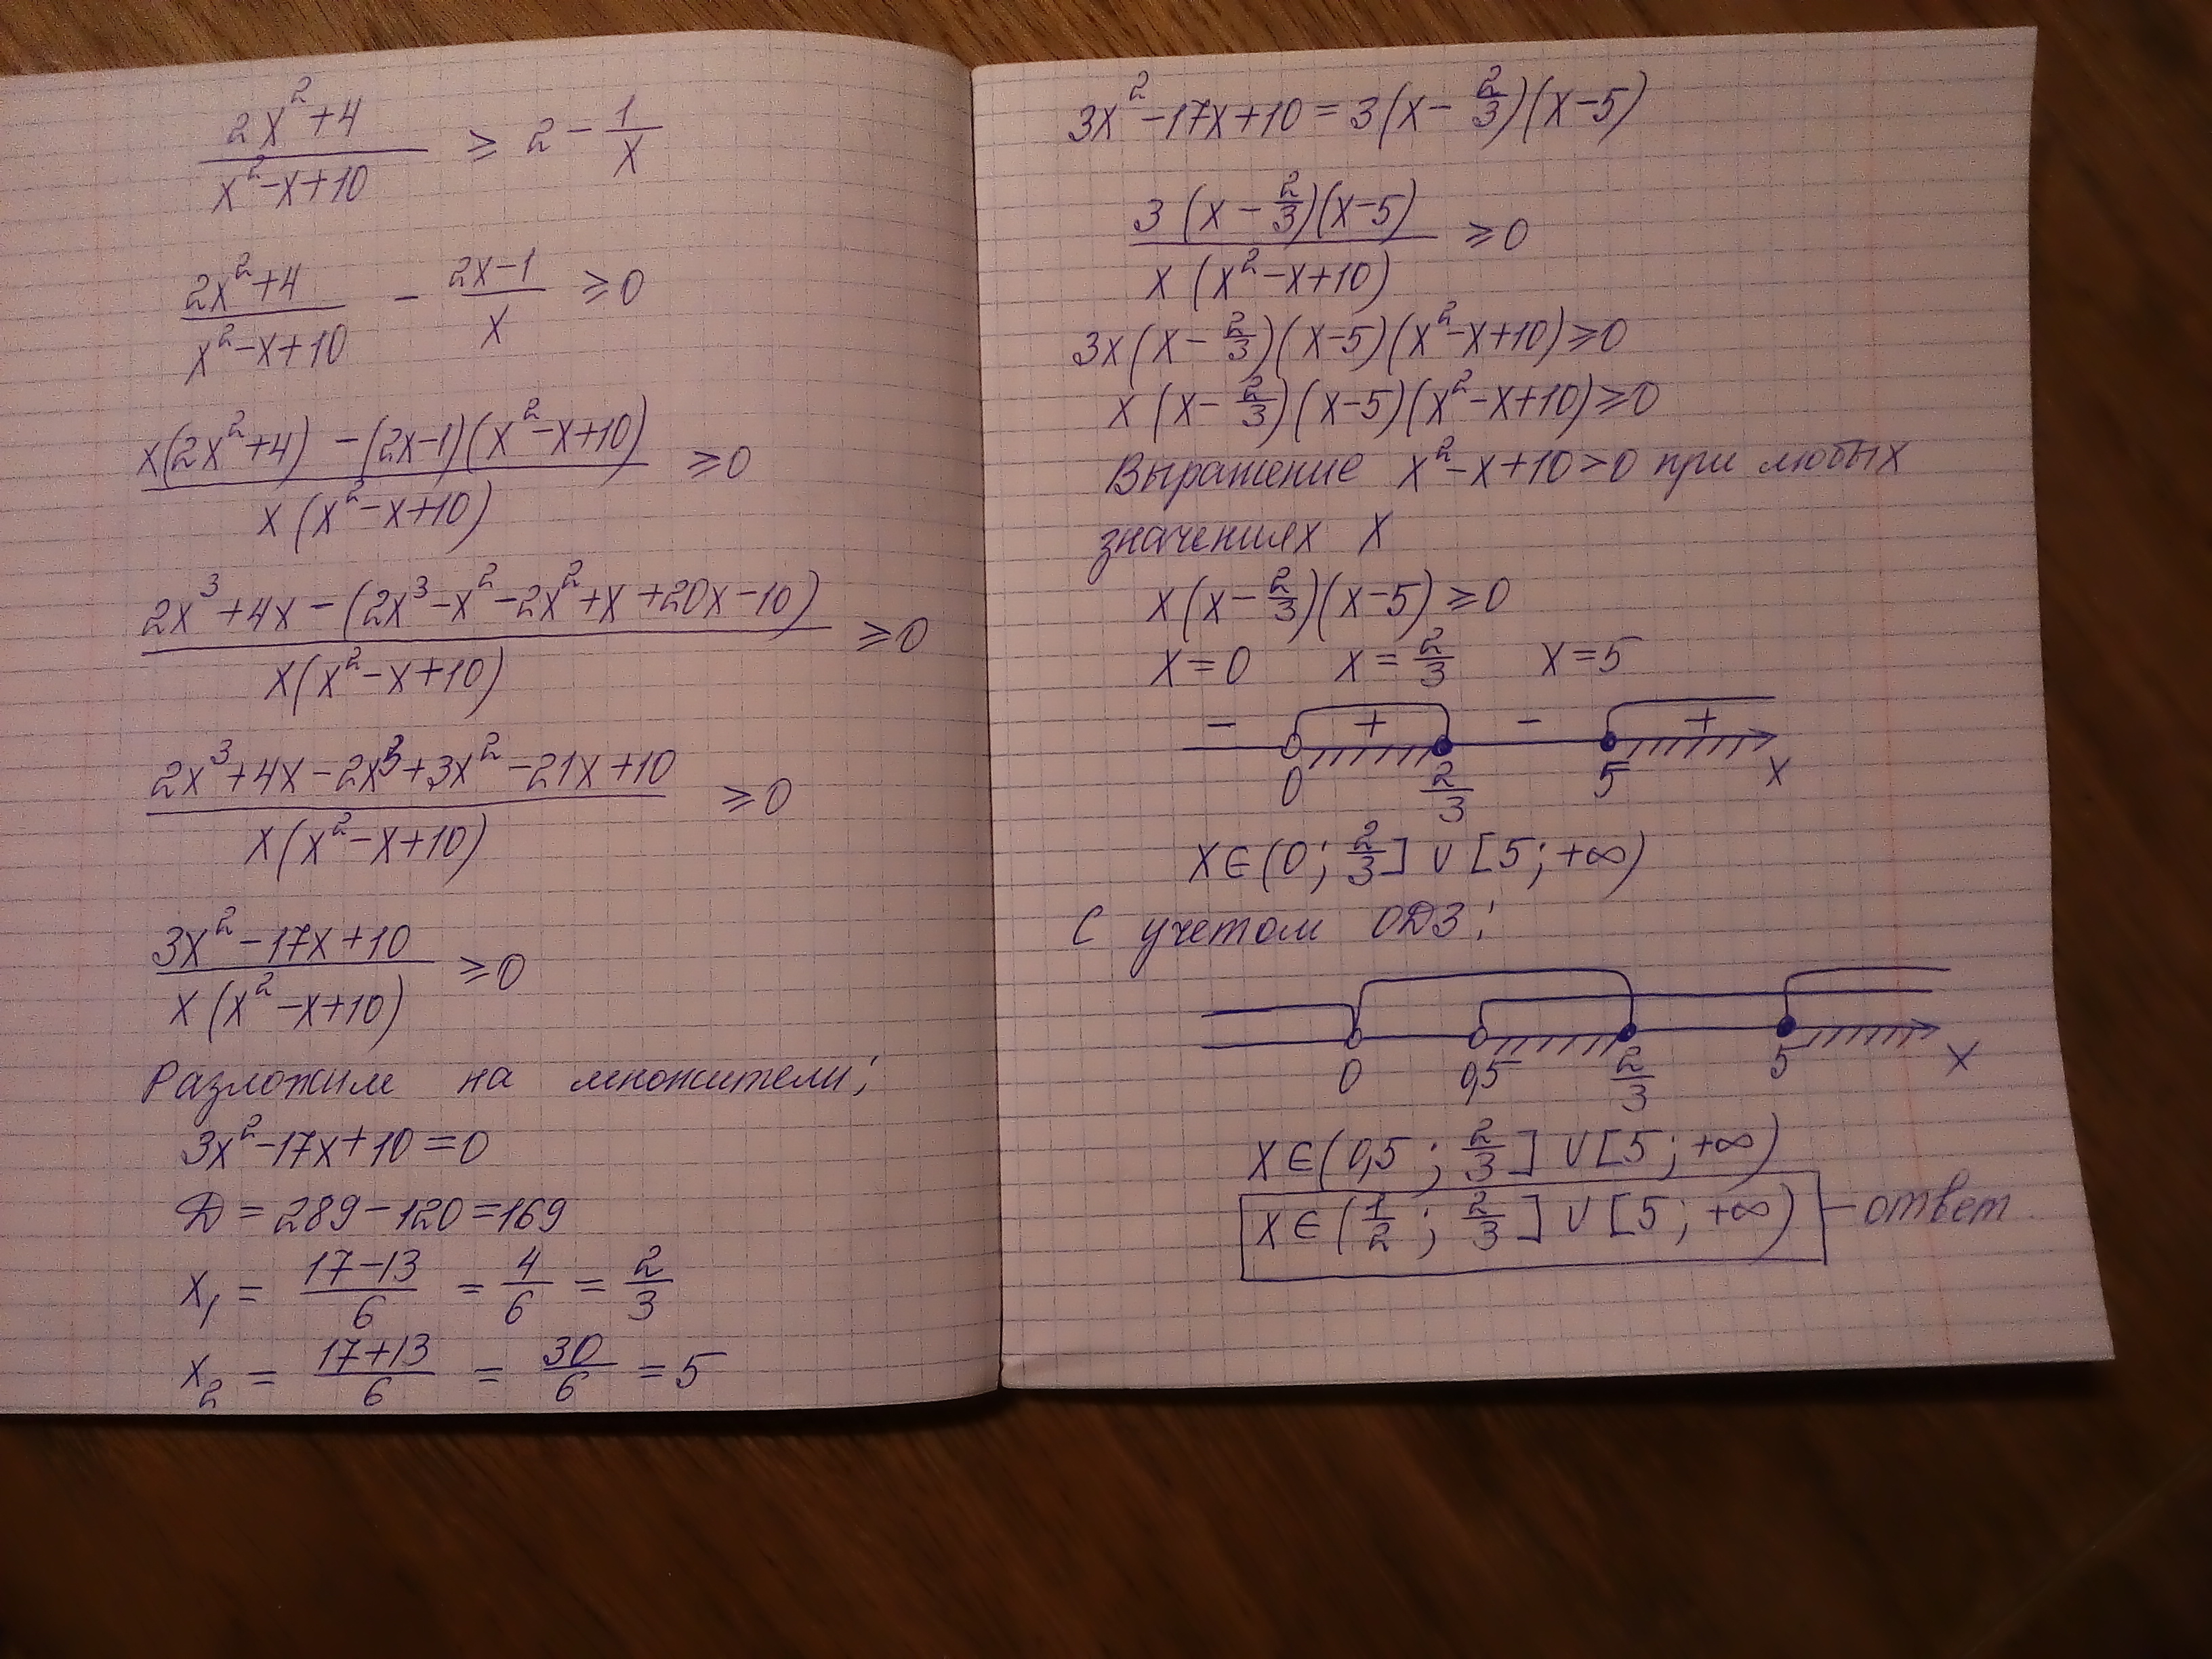 (2x²+4)/(x²-x+10) ≥ 2 - 1/x
(2x²+4)/(x²-x+10) - (2x-1)/x ≥ 0
(x(2x²+4) - (2x-1)(x²-x+10))/(x(x²-x+10)) ≥ 0
(2x³+4x-(2x³-x²-2x²+x+20x-10))/(x(x²-x+10)) ≥ 0
(2x³+4x-2x³+3x²-21x+10)/(x(x²-x+10)) ≥ 0
(3x²-17x+10)/(x(x²-x+10)) ≥ 0
Разложим на множители:
3x²-17x+10=0
D = 289-120=169
x₁ = (17-13)/6 = 4/6 = 2/3
x₂ = (17+13)/6 = 30/6 = 5
3x²-17x+10=3(x-2/3)(x-5)
(3(x-2/3)(x-5))/(x(x²-x+10)) ≥ 0
3x(x-2/3)(x-5)(x²-x+10)≥0
x(x-2/3)(x-5)(x²-x+10)≥0
Выражение x²-x+10>0 при любых
значениях x
x(x-2/3)(x-5)≥0
x=0 x=2/3 x=5
- + - +
0 2/3 5 x
x∈(0; 2/3]∪[5;+∞)
С учетом ОДЗ:
0 0,5 2/3 5 x
x∈(0,5; 2/3]∪[5;+∞)
x∈(1/2; 2/3]∪[5;+∞) - ответ